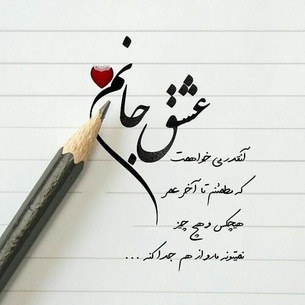 عشق جانم
آنقدر می خواهمت
که مطمئنم تا آخر عمر
هیچکس و هیچ چیز
نمیتونه مارو از هم جدا کنه ...